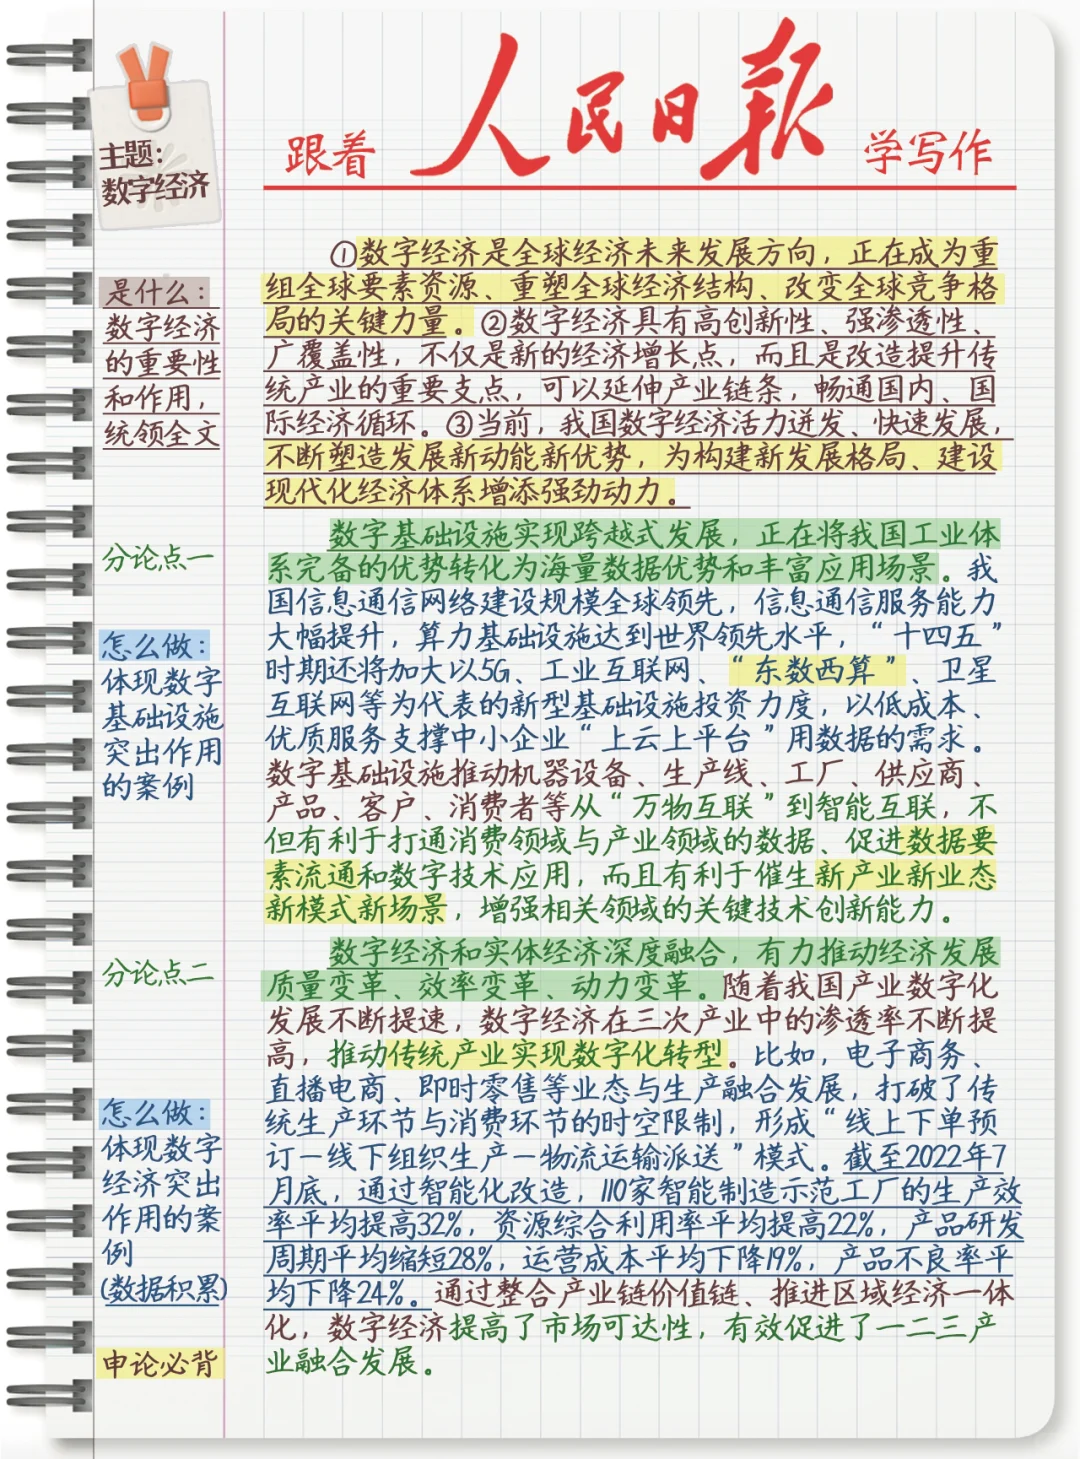 跟着人民日报学写作
主题：
数字经济
①数字经济是全球经济未来发展方向，正在成为重
组全球要素资源、重塑全球经济结构、改变全球竞争格
局的关键力量。②数字经济具有高创新性、强渗透性、
广覆盖性，不仅是新的经济增长点，而且是改造提升传
统产业的重要支点，可以延伸产业链条，畅通国内、国
际经济循环。③当前，我国数字经济活力迸发、快速发展，
不断塑造发展新动能新优势，为构建新发展格局、建设
现代化经济体系增添强劲动力。
是什么：
数字经济
的重要性
和作用，
统领全文
数字基础设施实现跨越式发展，正在将我国工业体
系完备的优势转化为海量数据优势和丰富应用场景。我
国信息通信网络建设规模全球领先，信息通信服务能力
大幅提升，算力基础设施达到世界领先水平，“十四五”
时期还将加大以5G、工业互联网、“东数西算”、卫星
互联网等为代表的新型基础设施投资力度，以低成本、
优质服务支撑中小企业“上云上平台”用数据的需求。
数字基础设施推动机器设备、生产线、工厂、供应商、
产品、客户、消费者等从“万物互联”到智能互联，不
但有利于打通消费领域与产业领域的数据、促进数据要
素流通和数字技术应用，而且有利于催生新产业新业态
新模式新场景，增强相关领域的关键技术创新能力。
分论点一
怎么做：
体现数字
基础设施
突出作用
的案例
数字经济和实体经济深度融合，有力推动经济发展
质量变革、效率变革、动力变革。随着我国产业数字化
发展不断提速，数字经济在三次产业中的渗透率不断提
高，推动传统产业实现数字化转型。比如，电子商务、
直播电商、即时零售等业态与生产融合发展，打破了传
统生产环节与消费环节的时空限制，形成“线上下单预
订—线下组织生产—物流运输派送”模式。截至2022年7
月底，通过智能化改造，110家智能制造示范工厂的生产效
率平均提高32%，资源综合利用率平均提高22%，产品研发
周期平均缩短28%，运营成本平均下降19%，产品不良率平
均下降24%。通过整合产业链价值链、推进区域经济一体
化，数字经济提高了市场可达性，有效促进了一二三产
业融合发展。
分论点二
怎么做：
体现数字
经济突出
作用的案
例
(数据积累)
申论必背